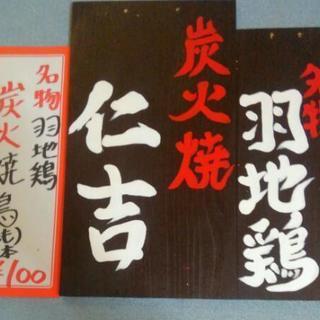 名物
羽地鶏
炭火焼
仁吉
名物
羽地鶏
炭火焼鳥
¥100